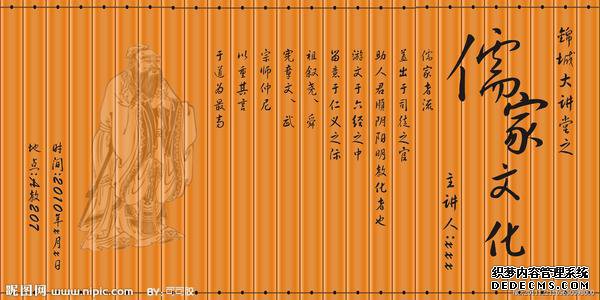 锦城大讲堂之
儒家文化
主讲人:xxx
儒家者流
盖出于司徒之官
助人君顺阴阳明教化者也
游文于六经之中
留意于仁义之际
祖叙尧、舜
宪章文、武
宗师仲尼
以重其言
于道为最高
时间:2010年x月x日
地点:x教207
昵图网 www.nipic.com BY:可可胶
织梦内容管理系统
DEDECMS.COM